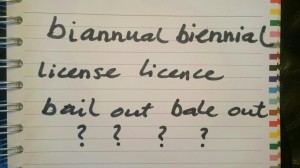 biannual biennial
license licence
bail out bale out
? ? ? ?